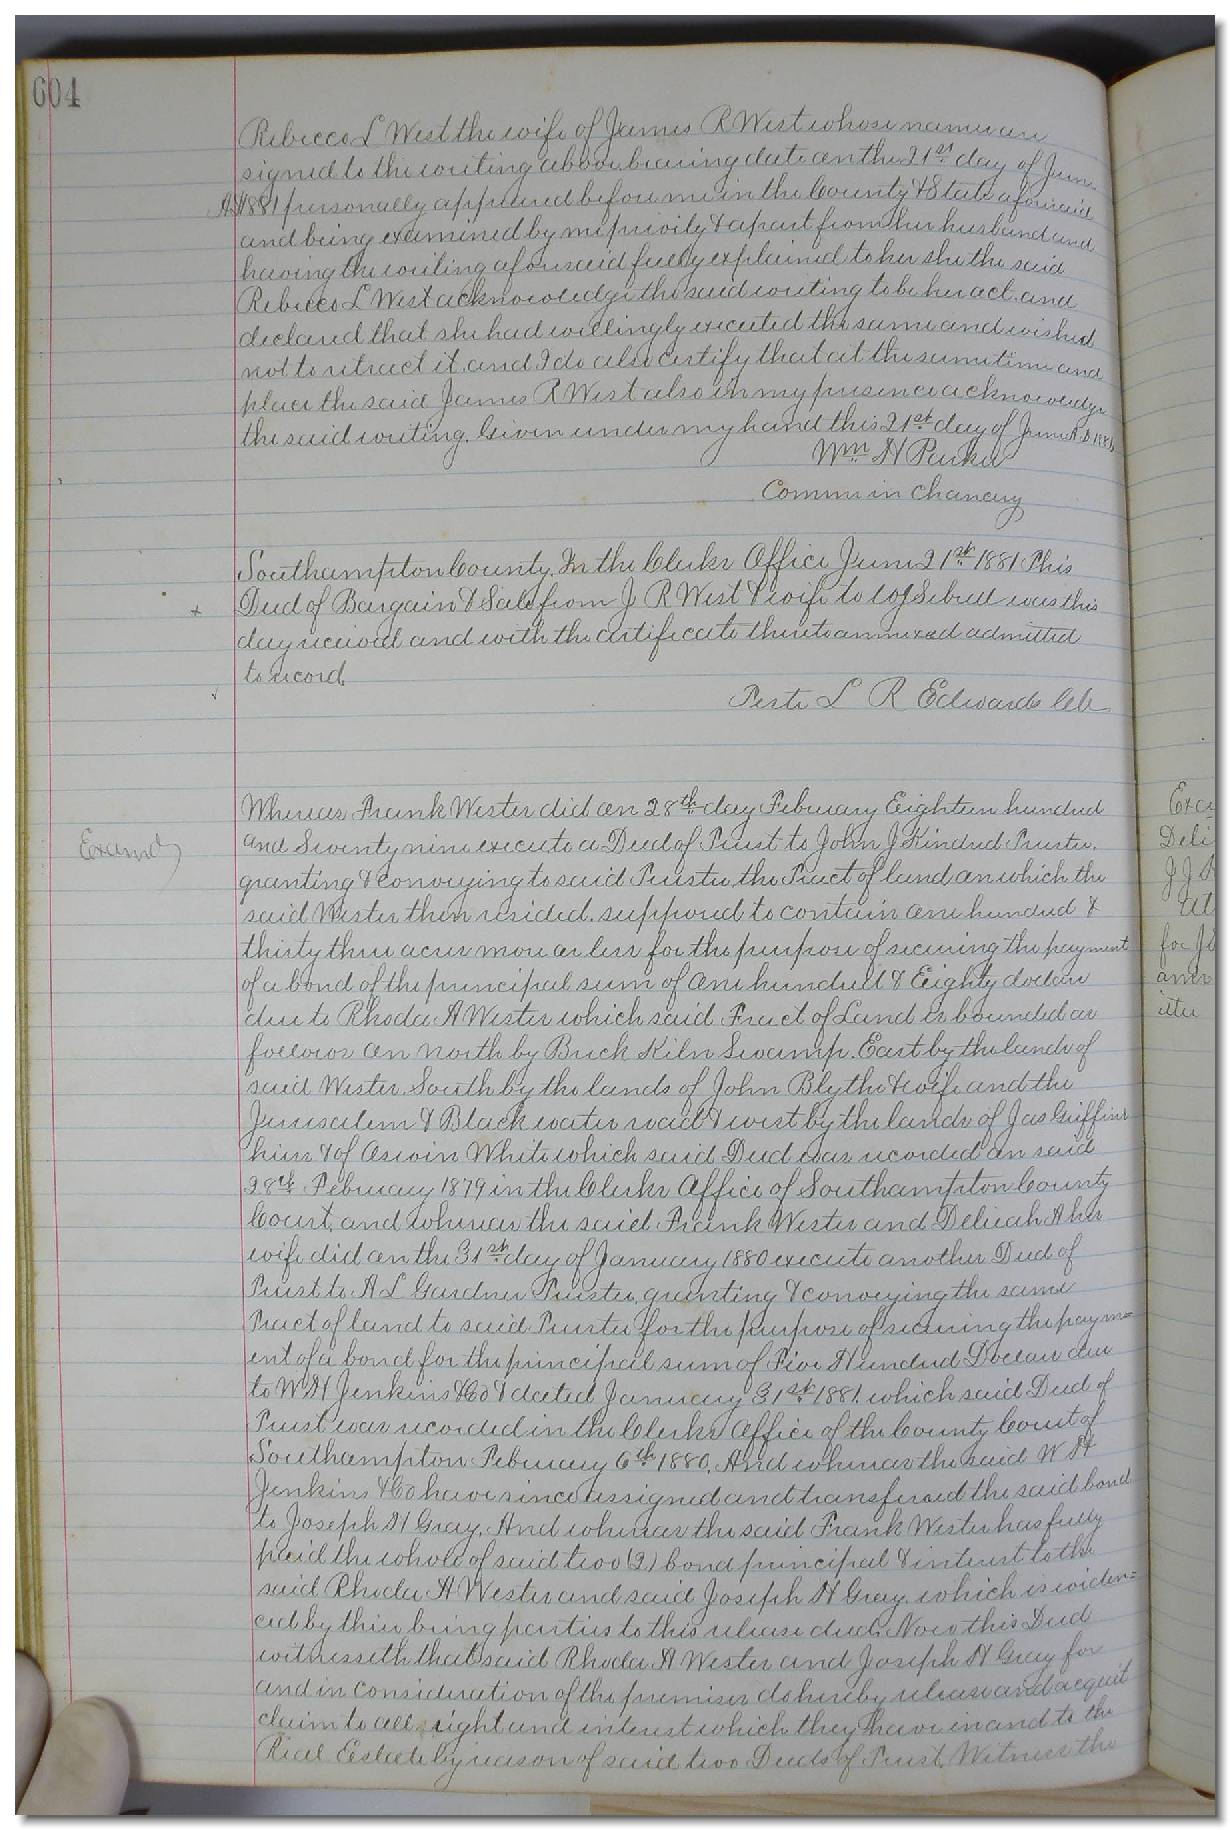 604
Rebecca L West the wife of James R West whose names are
signed to the writing above bearing date on the 21st day of June
AD 1881 personally appeared before me in the County & State aforesaid
and being examined by me privily & apart from her husband and
having the writing aforesaid fully explained to her she the said
Rebecca L West acknowledge the said writing to be her act and
declared that she had willingly executed the same and wished
not to retract it, and I do also certify that at the same time and
place the said James R West also in my presence acknowledge
the said writing. Given under my hand this 21st day of June A.D 1881
Wm H Parker
Commr in Chancery
Southampton County. In the Clerks Office June 21st 1881 This
Deed of Bargain & Sale from J R West & wife to Sebrell was this
day received and with the certificate thereto annexed admitted
to record.
Teste L R Edwards Clk
Whereas Frank Wester did on 28th day February Eighteen hundred
Examd
and Seventy nine execute a Deed of Trust to John J Kindred Trustee.
granting & conveying to said Trustee, the Tract of land on which the
said Wester then resided. supposed to contain one hundred &
thirty three acres more or less for the purpose of securing the payment
of a bond of the principal sum of one hundred & Eighty dollars
due to Rhoda A Wester which said Tract of Land is bounded as
follows on north by Brick Kiln Swamp. East by the lands of
said Wester South by the lands of John Blythe & wife and the
Jerusalem & Black water road & west by the lands of Jas Griffins
heirs & of White which said Deed was recorded on said
28th February 1879 in the Clerks Office of Southampton County
Court, and whereas the said Frank Wester and Delieah A his
wife did on the 31st day of January 1880 execute another Deed of
Trust to A L Gardner Trustee granting & conveying the same
Tract of land to said Trustee for the purpose of securing the paym=
ent of a bond for the principal sum of Five Hundred Dollars due
to W H Jenkins & Co & dated January 31st 1881. which said Deed of
Trust was recorded in the Clerks Office of the County Court of
Southampton February 6th 1880. And whereas the said W H
Jenkins & Co have since assigned and transferred the said bond
to Joseph H Gray. And whereas the said Frank Wester has fully
paid the whole of said two (2) bond principal & interest to the
said Rhoda A Wester and said Joseph H Gray. which is eviden=
ced by their being parties to this release deed. Now this Deed
witnesseth that said Rhoda A Wester and Joseph H Gray for
and in consideration of the premises do hereby release and acquit
claim to all right and interest which they have in and to the
Real Estate by reason of said two Deeds of Trust. Witness the
Exa
Deli
J J
for